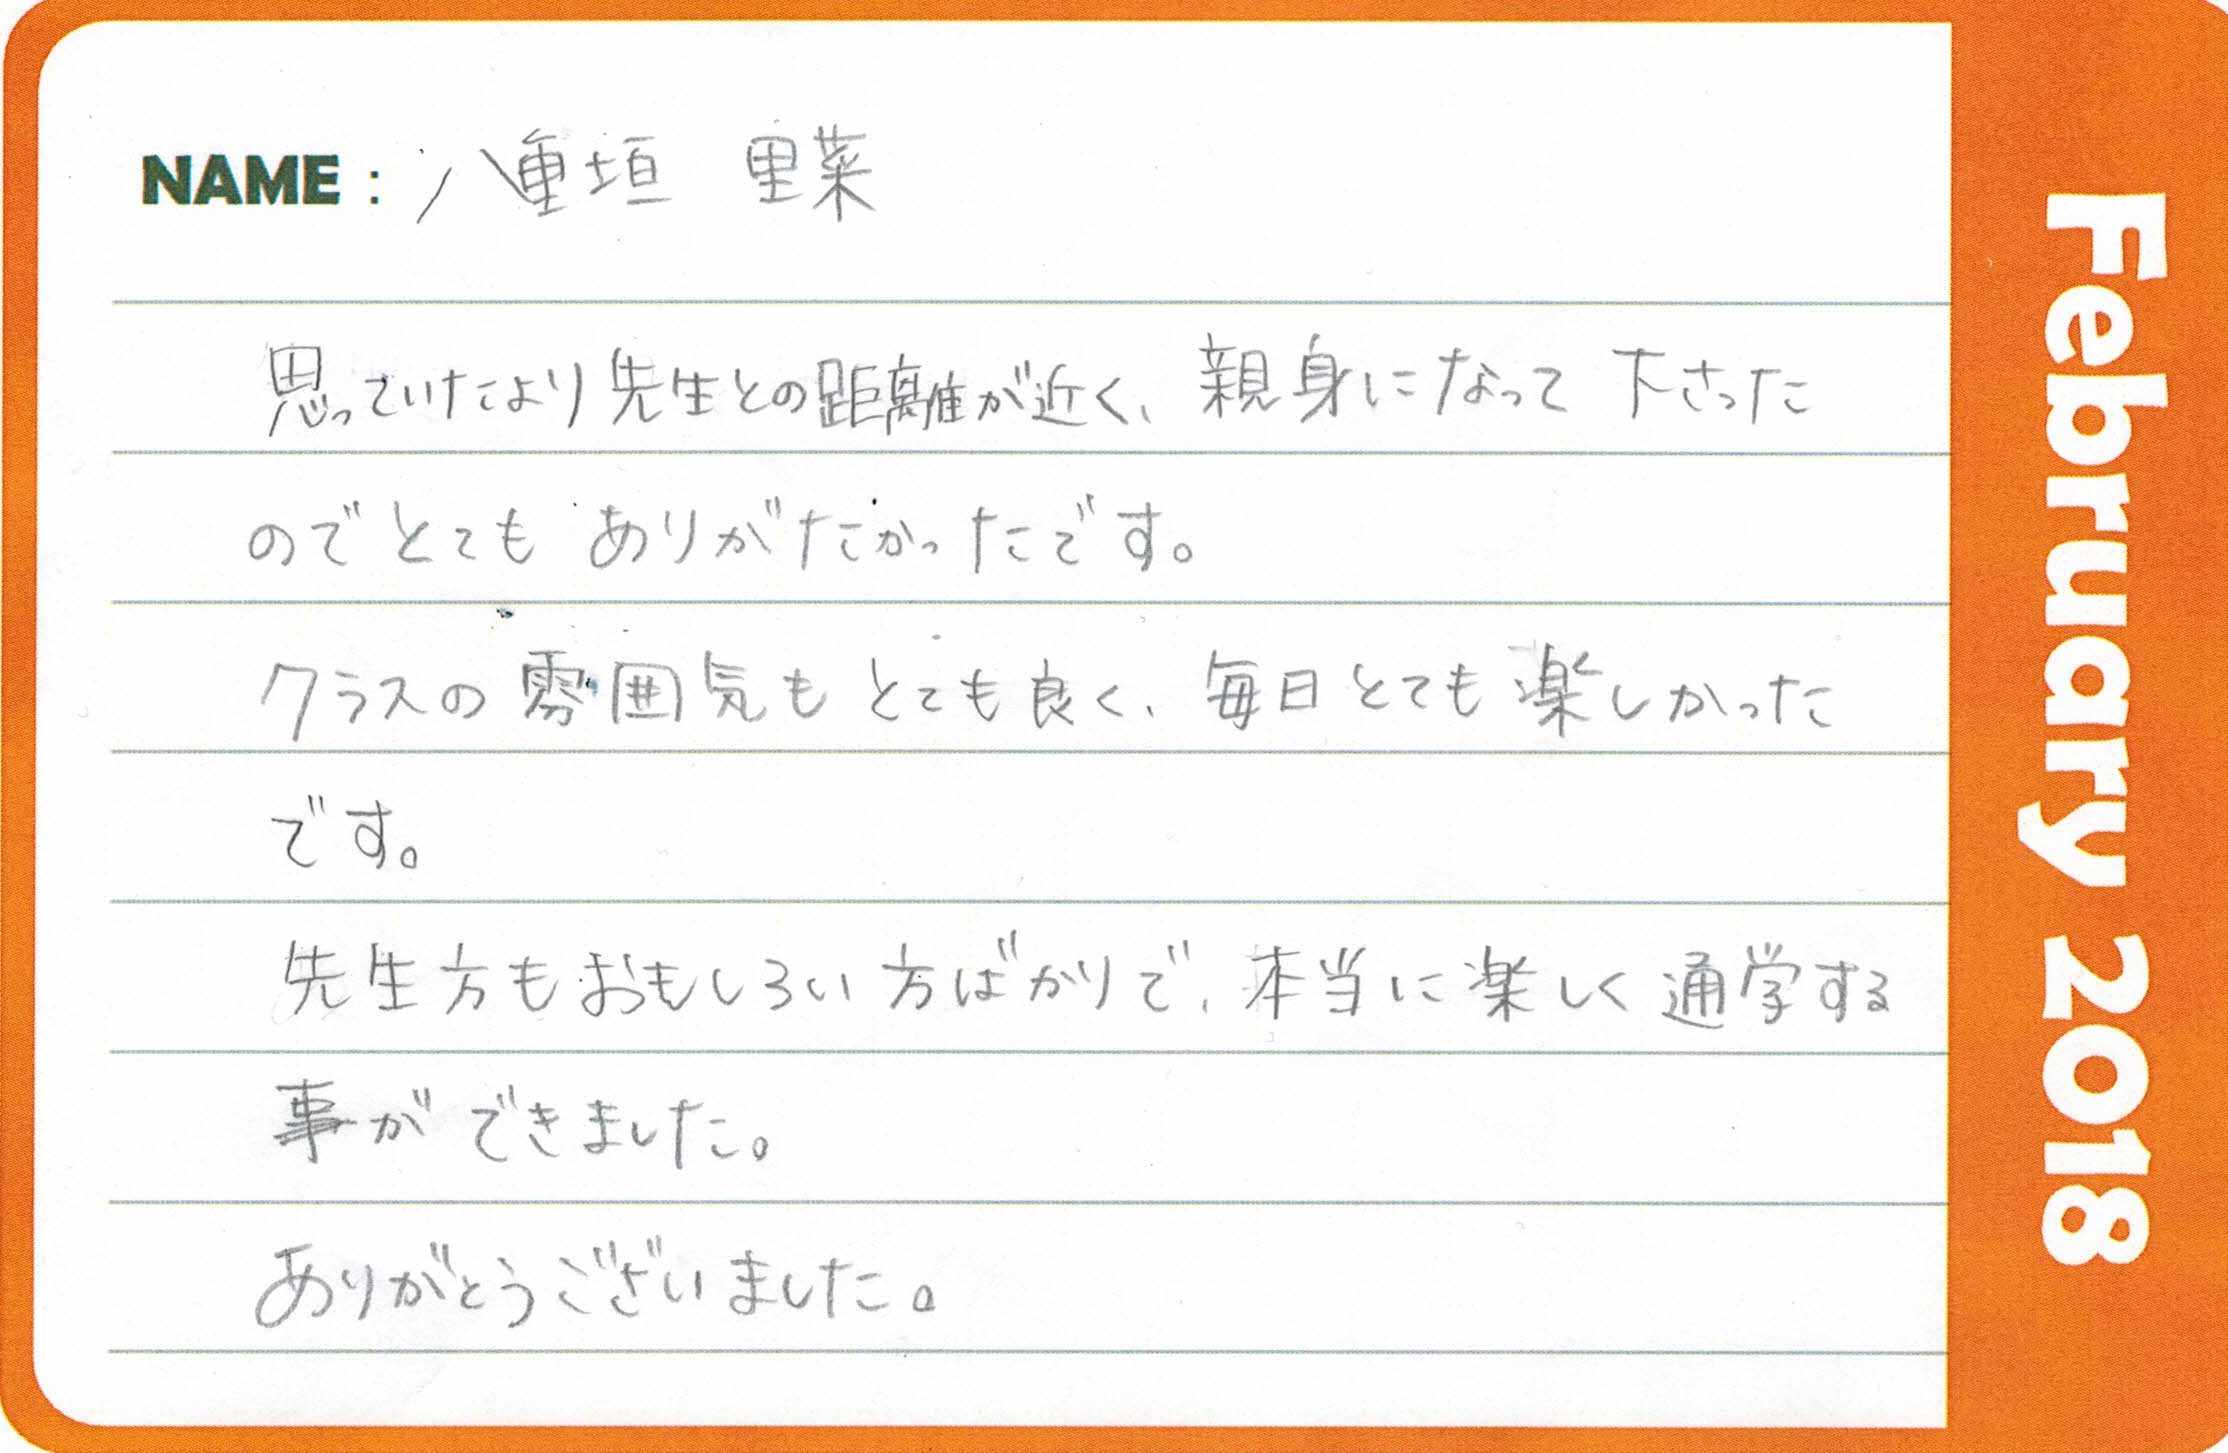 NAME : 八重垣 里菜
思っていたより先生との距離が近く、親身になって下さった
のでとてもありがたかったです。
クラスの雰囲気もとても良く、毎日とても楽しかった
です。
先生方もおもしろい方ばかりで、本当に楽しく通学する
事ができました。
ありがとうございました。
February 2018